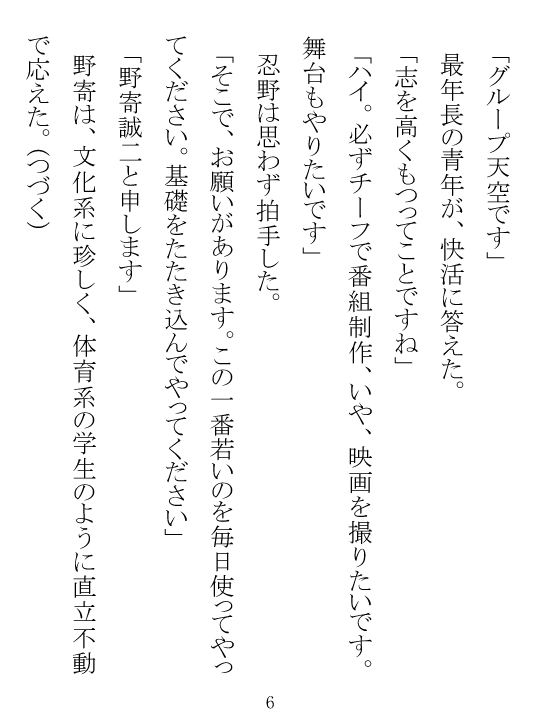 「グループ天空です」
　最年長の青年が、快活に答えた。
「志を高くもつってことですね」
「ハイ。必ずチーフで番組制作、いや、映画を撮りたいです。
舞台もやりたいです」
　忍野は思わず拍手した。
「そこで、お願いがあります。この一番若いのを毎日使ってやっ
てください。基礎をたたき込んでやってください」
「野寄誠二と申します」
　野寄は、文化系に珍しく、体育系の学生のように直立不動
で応えた。（つづく）
6